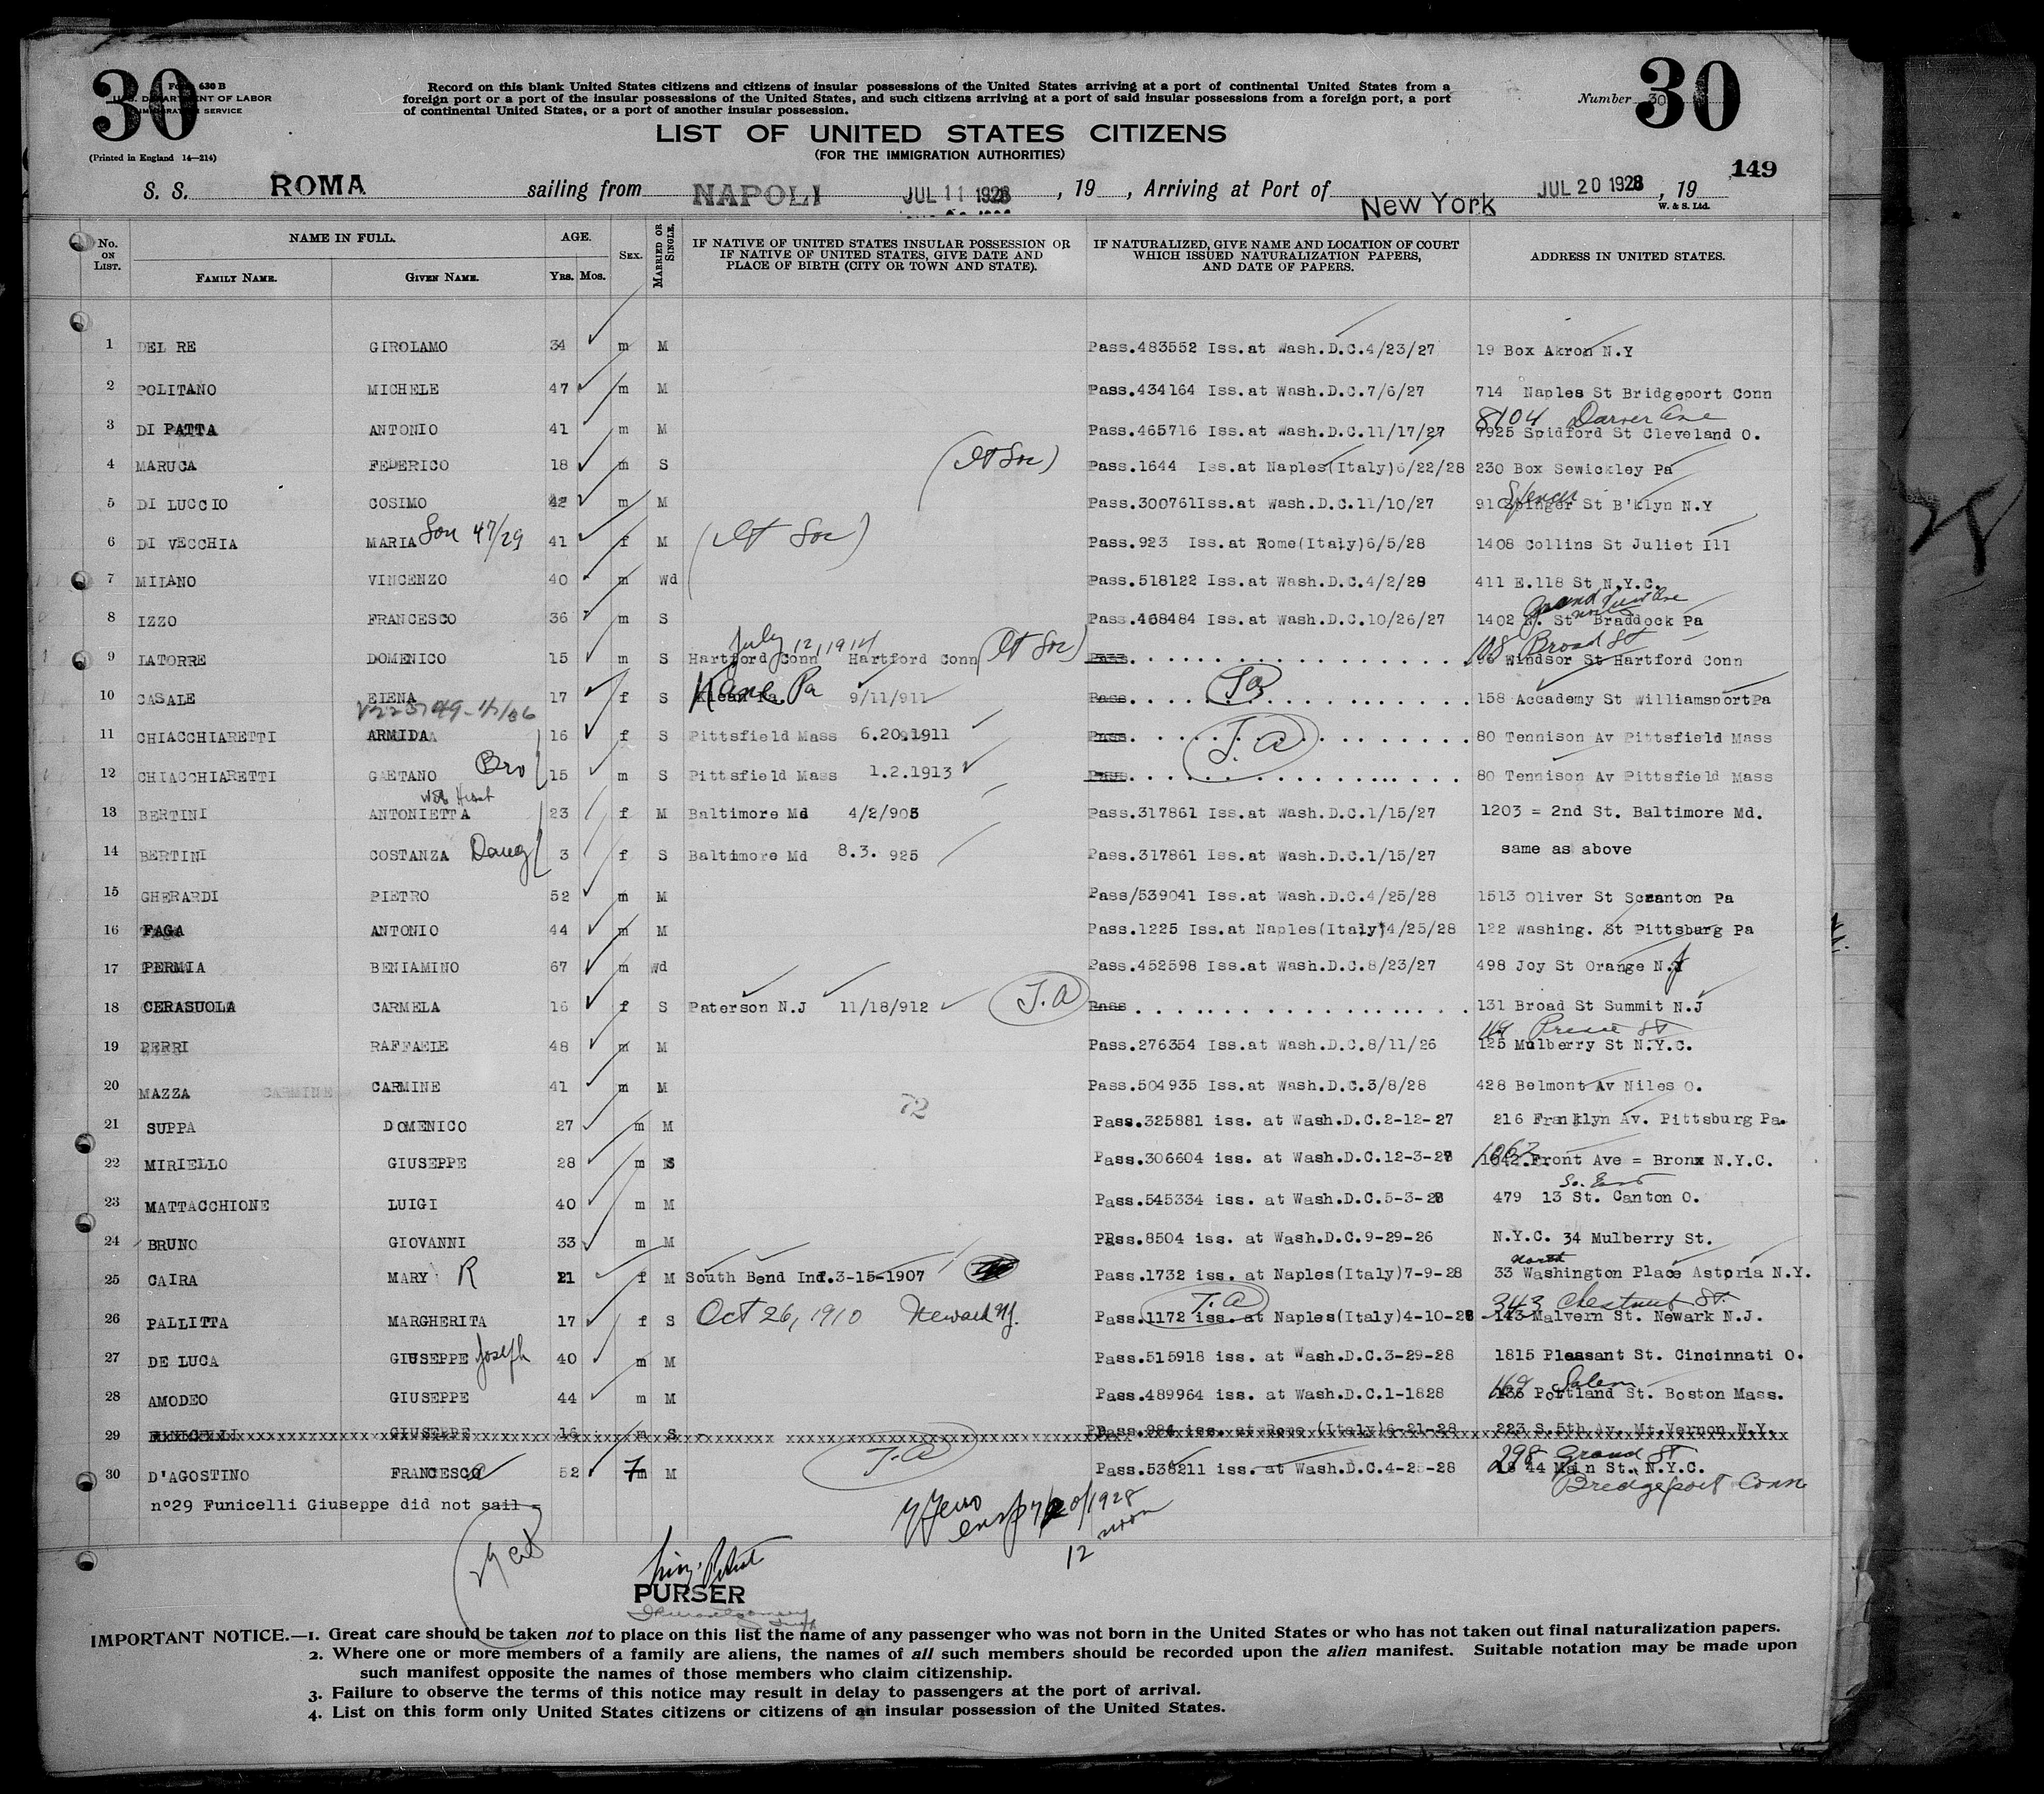 30
Form 630 B
U. S. DEPARTMENT OF LABOR
IMMIGRATION SERVICE
(Printed in England 14—214)
Record on this blank United States citizens and citizens of insular possessions of the United States arriving at a port of continental United States from a
foreign port or a port of the insular possessions of the United States, and such citizens arriving at a port of said insular possessions from a foreign port, a port
of continental United States, or a port of another insular possession.
Number 30
30
LIST OF UNITED STATES CITIZENS
(FOR THE IMMIGRATION AUTHORITIES)
149
S. S. ROMA sailing from NAPOLI JUL 11 1928 , 19 , Arriving at Port of New York JUL 20 1928 , 19
W. & S. Ltd.
No. ON LIST. NAME IN FULL. FAMILY NAME. GIVEN NAME. AGE. YRS. MOS. SEX. MARRIED OR SINGLE.
IF NATIVE OF UNITED STATES INSULAR POSSESSION OR IF NATIVE OF UNITED STATES, GIVE DATE AND PLACE OF BIRTH (CITY OR TOWN AND STATE).
IF NATURALIZED, GIVE NAME AND LOCATION OF COURT WHICH ISSUED NATURALIZATION PAPERS, AND DATE OF PAPERS.
ADDRESS IN UNITED STATES.
1 DEL RE GIROLAMO 34 m M Pass.483552 Iss.at Wash.D.C.4/23/27 19 Box Akron N.Y
2 POLITANO MICHELE 47 m M Pass.434164 Iss.at Wash.D.C.7/6/27 714 Naples St Bridgeport Conn
8104 Darver Ave
3 DI PATTA ANTONIO 41 m M Pass.465716 Iss.at Wash.D.C.11/17/27 7925 Spidford St Cleveland O.
4 MARUCA FEDERICO 18 m S Pass.1644 Iss.at Naples(Italy)6/22/28 230 Box Sewickley Pa
5 DI LUCCIO COSIMO 42 m M Pass.300761Iss.at Wash.D.C.11/10/27 910 Spinger St B'klyn N.Y
Spencer
6 DI VECCHIA MARIA Son 47/29 41 f M Pass.923 Iss.at Rome(Italy)6/5/28 1408 Collins St Juliet Ill
7 MILANO VINCENZO 40 m Wd Pass.518122 Iss.at Wash.D.C.4/2/28 411 E.118 St N.Y.C.
8 IZZO FRANCESCO 36 m S Pass.468484 Iss.at Wash.D.C.10/26/27 1402 N. St Braddock Pa
July 12, 1914
108 Broad St
9 IATORRE DOMENICO 15 m S Hartford Conn Hartford Conn Pass 96 Windsor St Hartford Conn
Kane Pa
10 CASALE EIENA 17 f S 9/11/911 Pass 158 Accademy St WilliamsportPa
11 CHIACCHIARETTI ARMIDA 16 f S Pittsfield Mass 6.20.1911 Pass T.a 80 Tennison Av Pittsfield Mass
12 CHIACCHIARETTI GAETANO Bro 15 m S Pittsfield Mass 1.2.1913 Pass 80 Tennison Av Pittsfield Mass
13 BERTINI ANTONIETTA 23 f M Baltimore Md 4/2/905 Pass.317861 Iss.at Wash.D.C.1/15/27 1203 = 2nd St. Baltimore Md.
14 BERTINI COSTANZA Daug 3 f S Baltimore Md 8.3. 925 Pass.317861 Iss.at Wash.D.C.1/15/27 same as above
15 GHERARDI PIETRO 52 m M Pass/539041 Iss.at Wash.D.C.4/25/28 1513 Oliver St Scranton Pa
16 FAGA ANTONIO 44 m M Pass.1225 Iss.at Naples(Italy)4/25/28 122 Washing. St Pittsburg Pa
17 PERMIA BENIAMINO 67 m Wd Pass.452598 Iss.at Wash.D.C.8/23/27 498 Joy St Orange N.J
18 CERASUOLA CARMELA 16 f S Paterson N.J 11/18/912 T.a Pass 131 Broad St Summit N.J
19 PERRI RAFFAELE 48 m M Pass.276354 Iss.at Wash.D.C.8/11/26 125 Mulberry St N.Y.C.
20 MAZZA CARMINE CARMINE 41 m M Pass.504935 Iss.at Wash.D.C.3/8/28 428 Belmont Av Niles O.
72
21 SUPPA DOMENICO 27 m M Pass.325881 iss. at Wash.D.C.2-12-27 216 Franklyn Av. Pittsburg Pa.
22 MIRIELLO GIUSEPPE 28 m S Pass.306604 iss. at Wash.D.C.12-3-27 1042.Front Ave = Bronx N.Y.C.
So. East
23 MATTACCHIONE LUIGI 40 m M Pass.545334 iss. at Wash.D.C.5-3-28 479 13 St. Canton O.
24 BRUNO GIOVANNI 33 m M Pass.8504 iss. at Wash.D.C.9-29-26 N.Y.C. 34 Mulberry St.
North
25 CAIRA MARY R 21 f M South Bend Ind.3-15-1907 Pass.1732 iss. at Naples(Italy)7-9-28 33 Washington Place Astoria N.Y.
T.a
343 Chestnut St.
26 PALLITTA MARGHERITA 17 f S Oct 26, 1910 Newark N.J. Pass.1172 iss. at Naples(Italy)4-10-28 143 Malvern St. Newark N.J.
27 DE LUCA GIUSEPPE Joseph 40 m M Pass.515918 iss. at Wash.D.C.3-29-28 1815 Pleasant St. Cincinnati O.
Salem
28 AMODEO GIUSEPPE 44 m M Pass.489964 iss. at Wash.D.C.1-1828 136 Portland St. Boston Mass.
29 FUNICELLI GIUSEPPE 16 m S Pass.984 iss. at Rome (Italy)6-21-28 223 S.5th Av. Mt.Vernon N.Y.
T.a
298 Grand St
30 D'AGOSTINO FRANCESCO 52 m M Pass.538211 iss. at Wash.D.C.4-25-28 44 Main St. N.Y.C.
Bridgeport Conn
nº29 Funicelli Giuseppe did not sail
7/20/1928
12 noon
PURSER
IMPORTANT NOTICE.—1. Great care should be taken not to place on this list the name of any passenger who was not born in the United States or who has not taken out final naturalization papers.
2. Where one or more members of a family are aliens, the names of all such members should be recorded upon the alien manifest. Suitable notation may be made upon
such manifest opposite the names of those members who claim citizenship.
3. Failure to observe the terms of this notice may result in delay to passengers at the port of arrival.
4. List on this form only United States citizens or citizens of an insular possession of the United States.